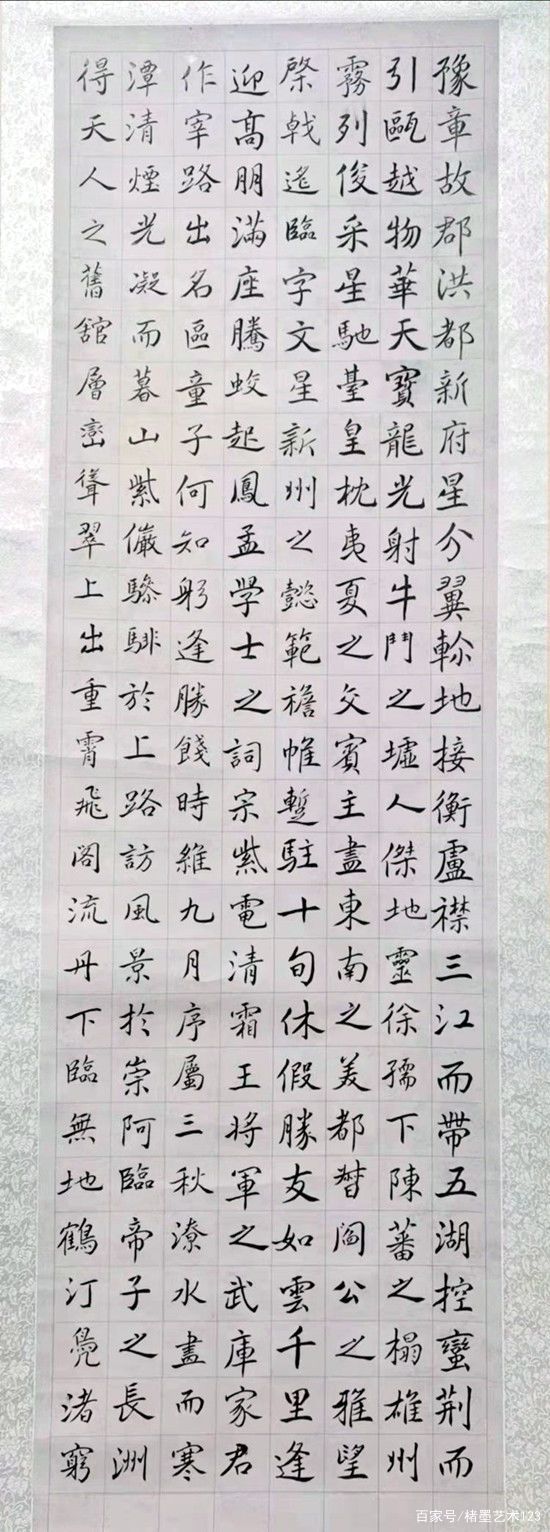 豫章故郡洪都新府星分翼軫地接衡盧襟三江而帶五湖控蠻荊而
引甌越物華天寶龍光射牛鬥之墟人傑地靈徐孺下陳蕃之榻雄州
霧列俊采星馳臺皇枕夷夏之交賓主盡東南之美都督閻公之雅望
棨戟遙臨字文星新州之懿範襜帷暫駐十旬休假勝友如雲千里逢
迎高朋滿座騰蛟起鳳孟學士之詞宗紫電清霜王將軍之武庫家君
作宰路出名區童子何知躬逢勝餞時維九月序屬三秋潦水盡而寒
潭清煙光凝而暮山紫儼驂騑於上路訪風景於崇阿臨帝子之長洲
得天人之舊舘層巒聳翠上出重霄飛閣流丹下臨無地鶴汀鳧渚窮
百家号/楮墨艺术123